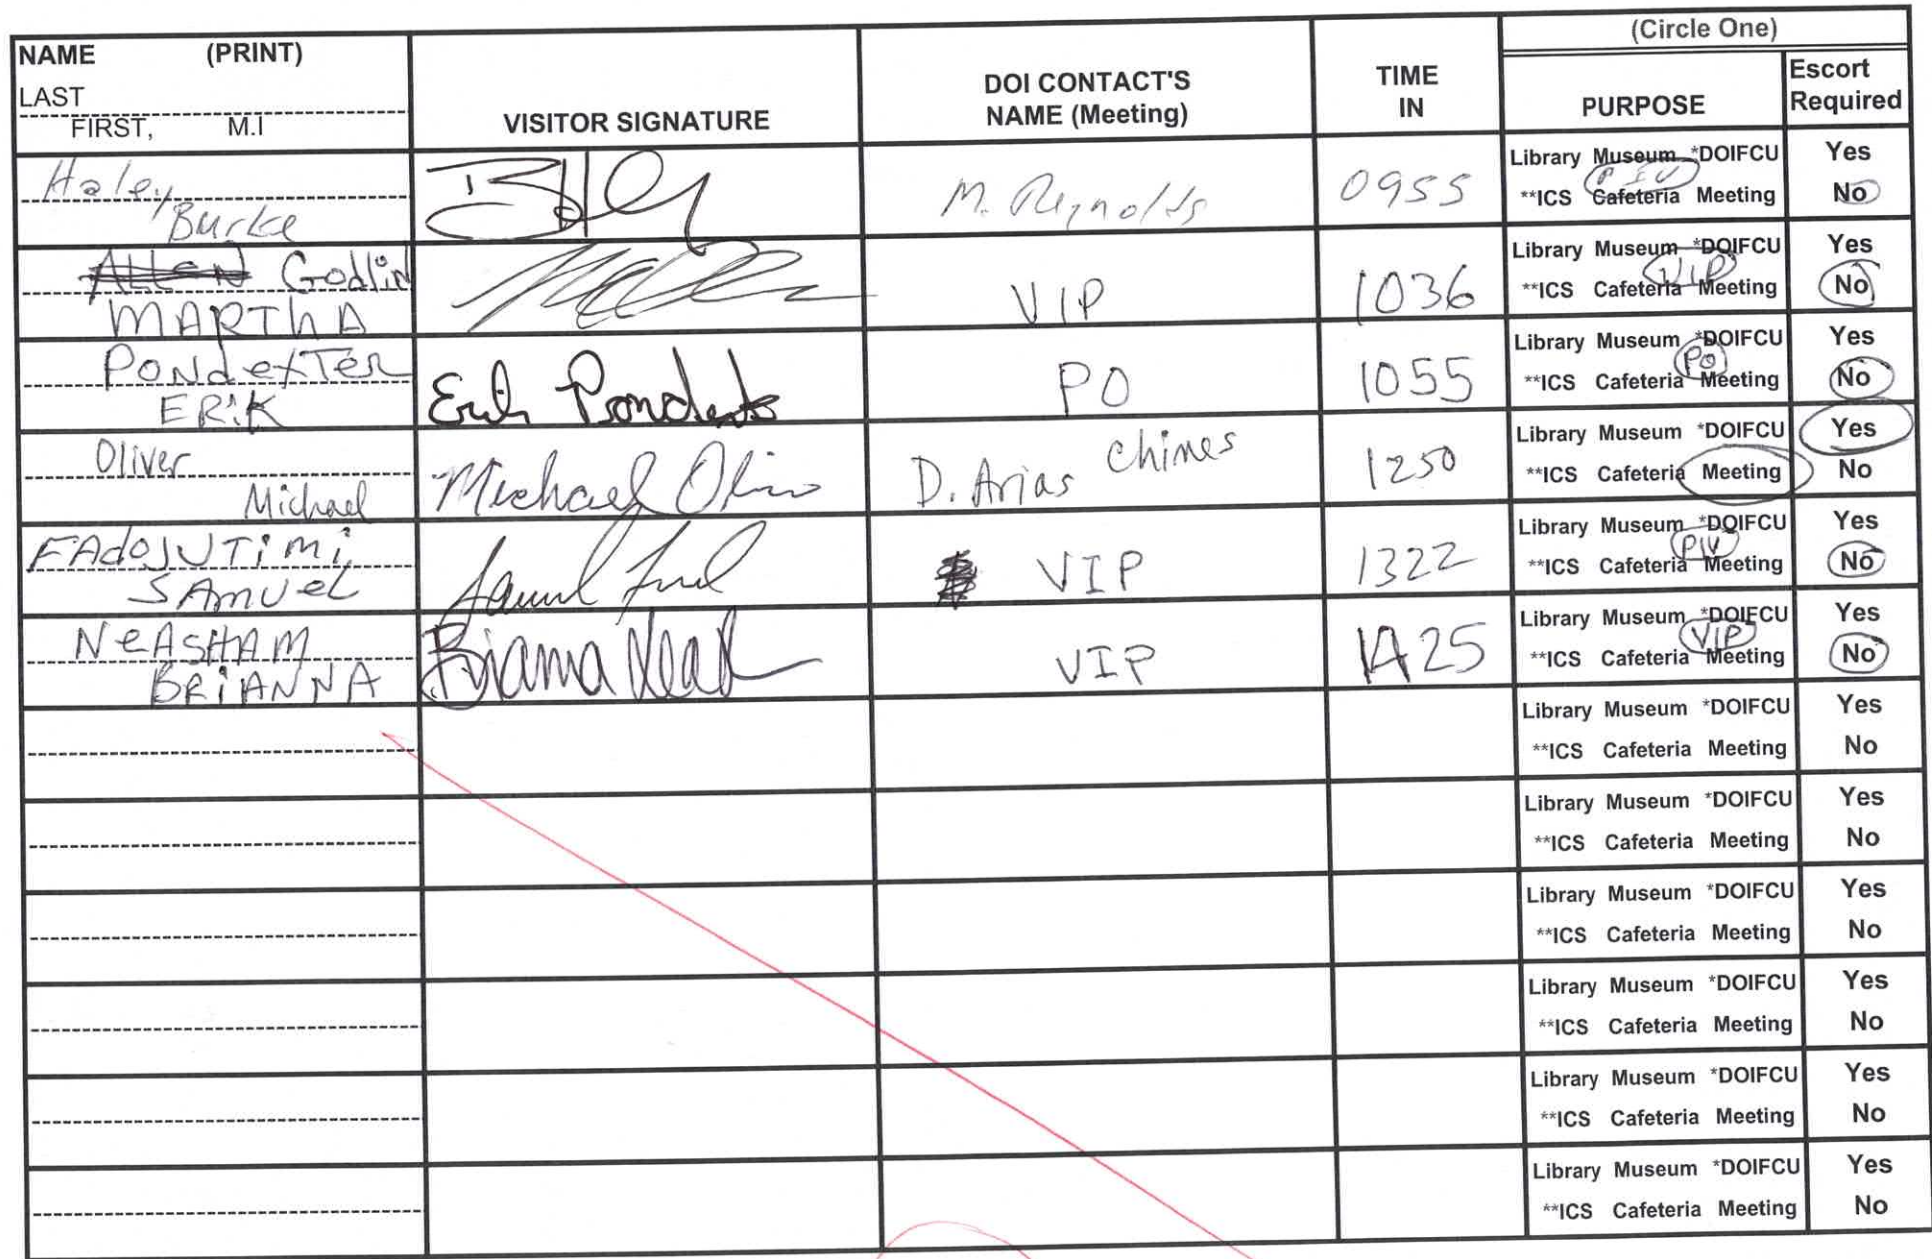 (Circle One)
NAME (PRINT)
LAST
FIRST, M.I
VISITOR SIGNATURE
DOI CONTACT'S
NAME (Meeting)
TIME
IN
PURPOSE
Escort
Required
Haley
Burke
M. Reynolds
0955
Library Museum *DOIFCU
PIV
**ICS Cafeteria Meeting
Yes
No
ALLEN Godlin
MARTHA
VIP
1036
Library Museum *DOIFCU
VIP
**ICS Cafeteria Meeting
Yes
No
PONdexTER
ERiK
PO
1055
Library Museum *DOIFCU
PO
**ICS Cafeteria Meeting
Yes
No
Oliver
Michael
Michael
D. Arias Chimes
1250
Library Museum *DOIFCU
**ICS Cafeteria Meeting
Yes
No
FAdOJUTimi
SAmUeL
VIP
1322
Library Museum *DOIFCU
PIV
**ICS Cafeteria Meeting
Yes
No
NeASHAM
BRiANNA
Briana
VIP
1425
Library Museum *DOIFCU
VIP
**ICS Cafeteria Meeting
Yes
No
Library Museum *DOIFCU
**ICS Cafeteria Meeting
Yes
No
Library Museum *DOIFCU
**ICS Cafeteria Meeting
Yes
No
Library Museum *DOIFCU
**ICS Cafeteria Meeting
Yes
No
Library Museum *DOIFCU
**ICS Cafeteria Meeting
Yes
No
Library Museum *DOIFCU
**ICS Cafeteria Meeting
Yes
No
Library Museum *DOIFCU
**ICS Cafeteria Meeting
Yes
No